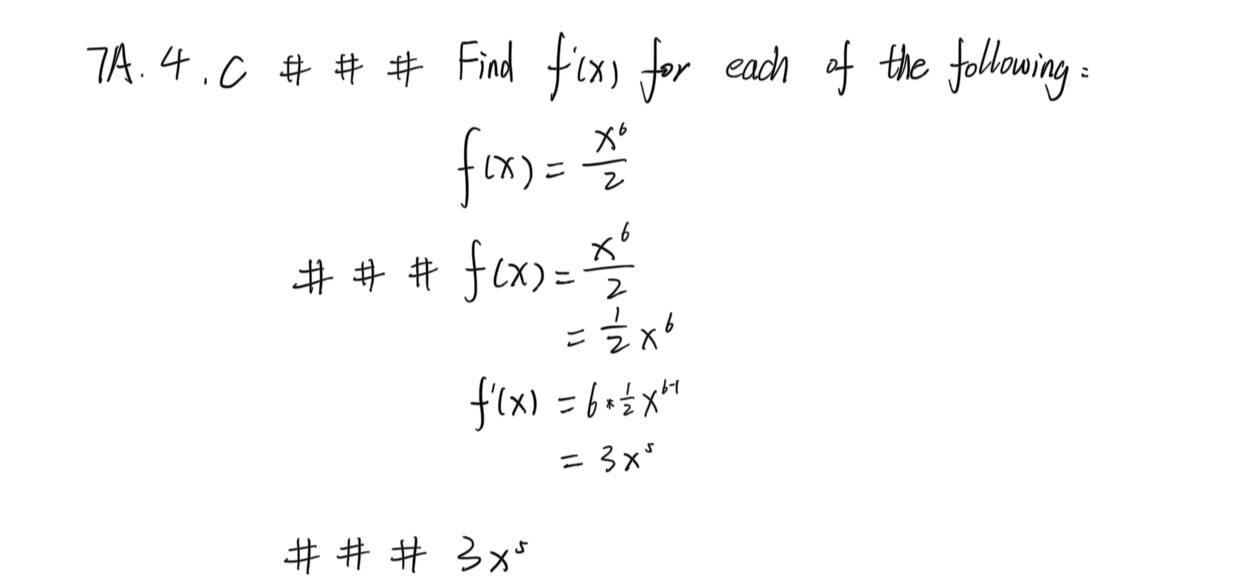 7A.4.C # # # Find f'(x) for each of the following:
f(x) = x^6/2
# # # f(x) = x^6/2
= 1/2 x^6
f'(x) = 6*1/2 x^(6-1)
= 3x^5
# # # 3x^5